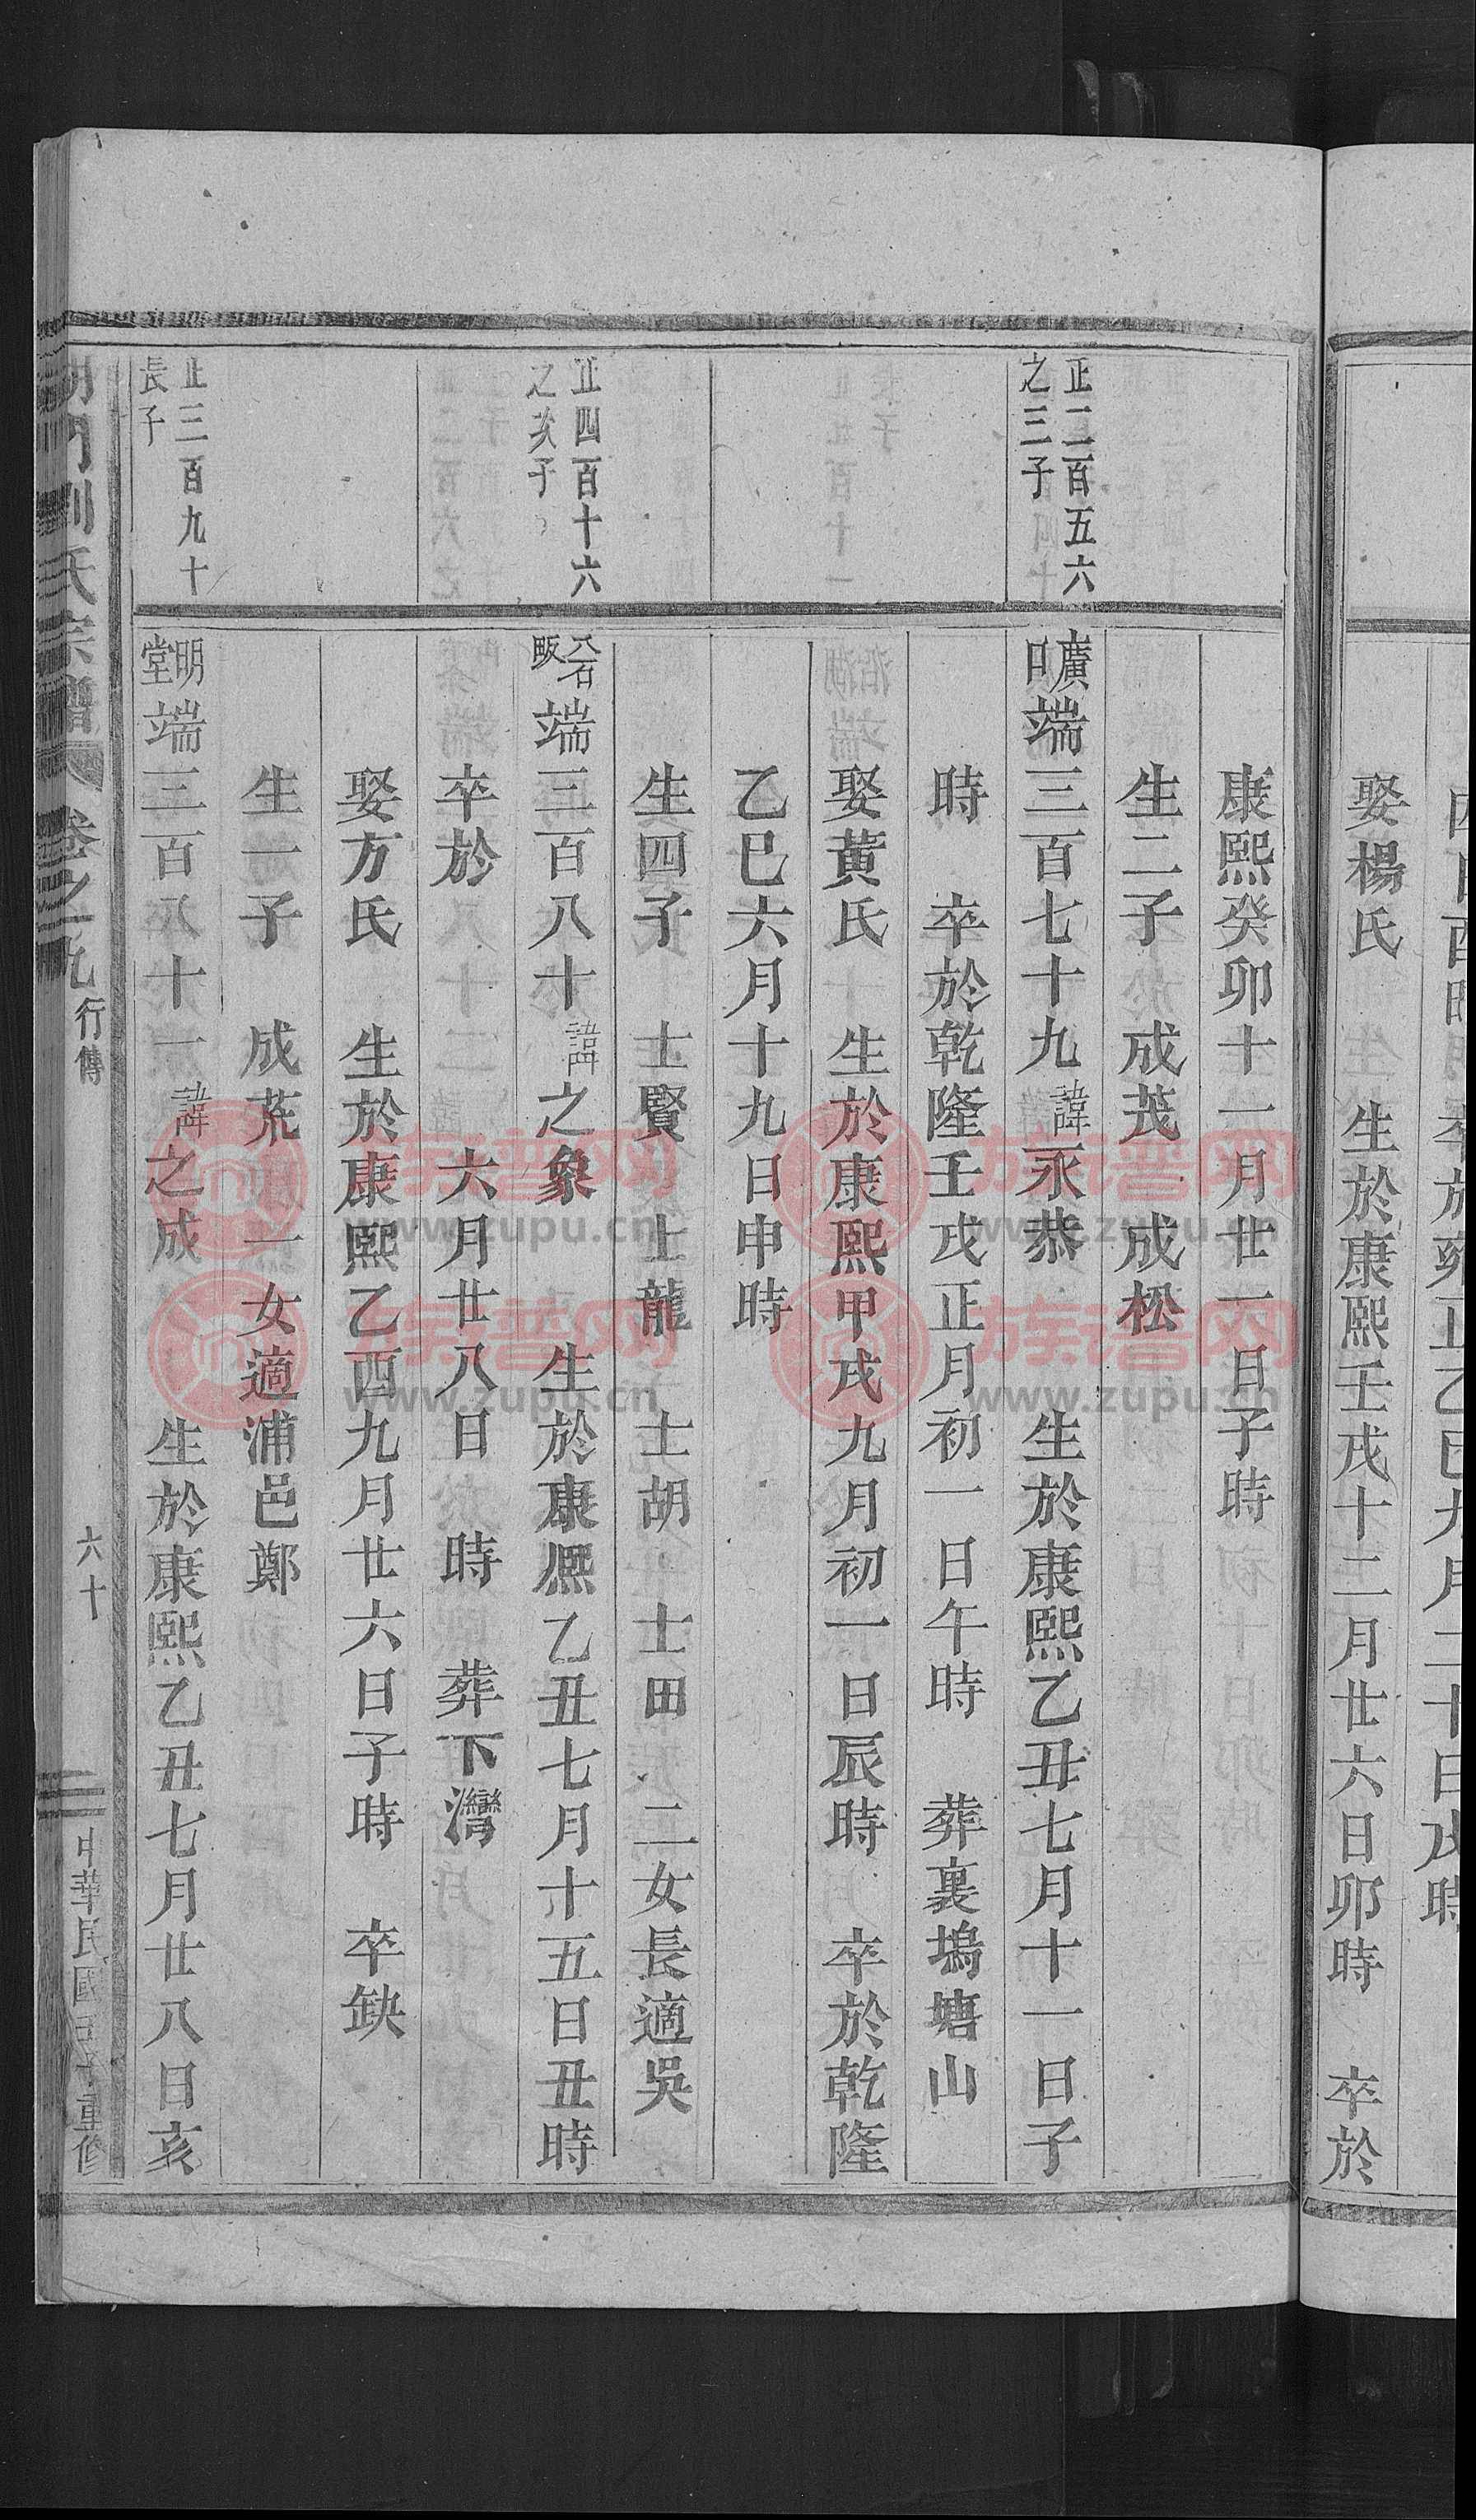 娶楊氏　生於康熙壬戌十二月廿六日卯時　卒於
康熙癸卯十一月廿一日子時
生二子　成茂　成松
正二百五六
之三子
廣
口
端三百七十九諱永恭　生於康熙乙丑七月十一日子
時　卒於乾隆壬戌正月初一日午時　葬裏塢塘山
娶黃氏　生於康熙甲戌九月初一日辰時　卒於乾隆
乙巳六月十九日申時
生四子　士賢　士龍　士胡　士田　二女長適吳
正四百十六
之次子
八石
畈
端三百八十諱之象　生於康熙乙丑七月十五日丑時
卒於　六月廿八日　時　葬下灣
娶方氏　生於康熙乙酉九月廿六日子時　卒缺
生一子　成荒　一女適浦邑鄭
正三百九十
長子
明
堂
端三百八十一諱之成　生於康熙乙丑七月廿八日亥
劉氏宗譜　卷之九　行傳　六十　中華民國壬子重修
族普网
www.zupu.cn
族普网
www.zupu.cn
族普网
www.zupu.cn
族普网
www.zupu.cn